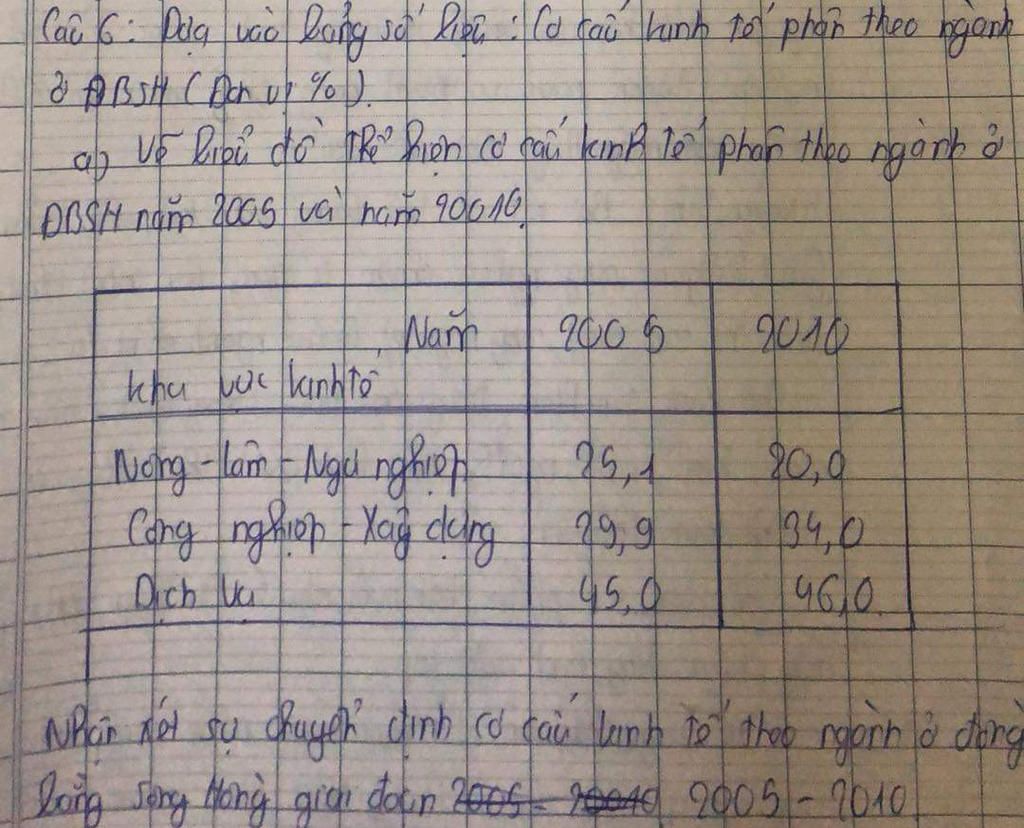 Câu 6: Dựa vào bảng số liệu: Cơ cấu kinh tế phân theo ngành
ở ĐBSH (Đơn vị %).
a) Vẽ biểu đồ thể hiện cơ cấu kinh tế phân theo ngành ở
ĐBSH năm 2005 và năm 20010.
Năm 2005 2010
Khu vực kinh tế
Nông - lâm - Ngư nghiệp 25,1 20,0
Công nghiệp - Xây dựng 29,9 34,0
Dịch vụ 45,0 46,0
Nhận xét sự chuyển dịnh cơ cấu kinh tế theo ngành ở đồng
bằng sông Hồng giai đoạn 2005 - 20010 2005 - 2010